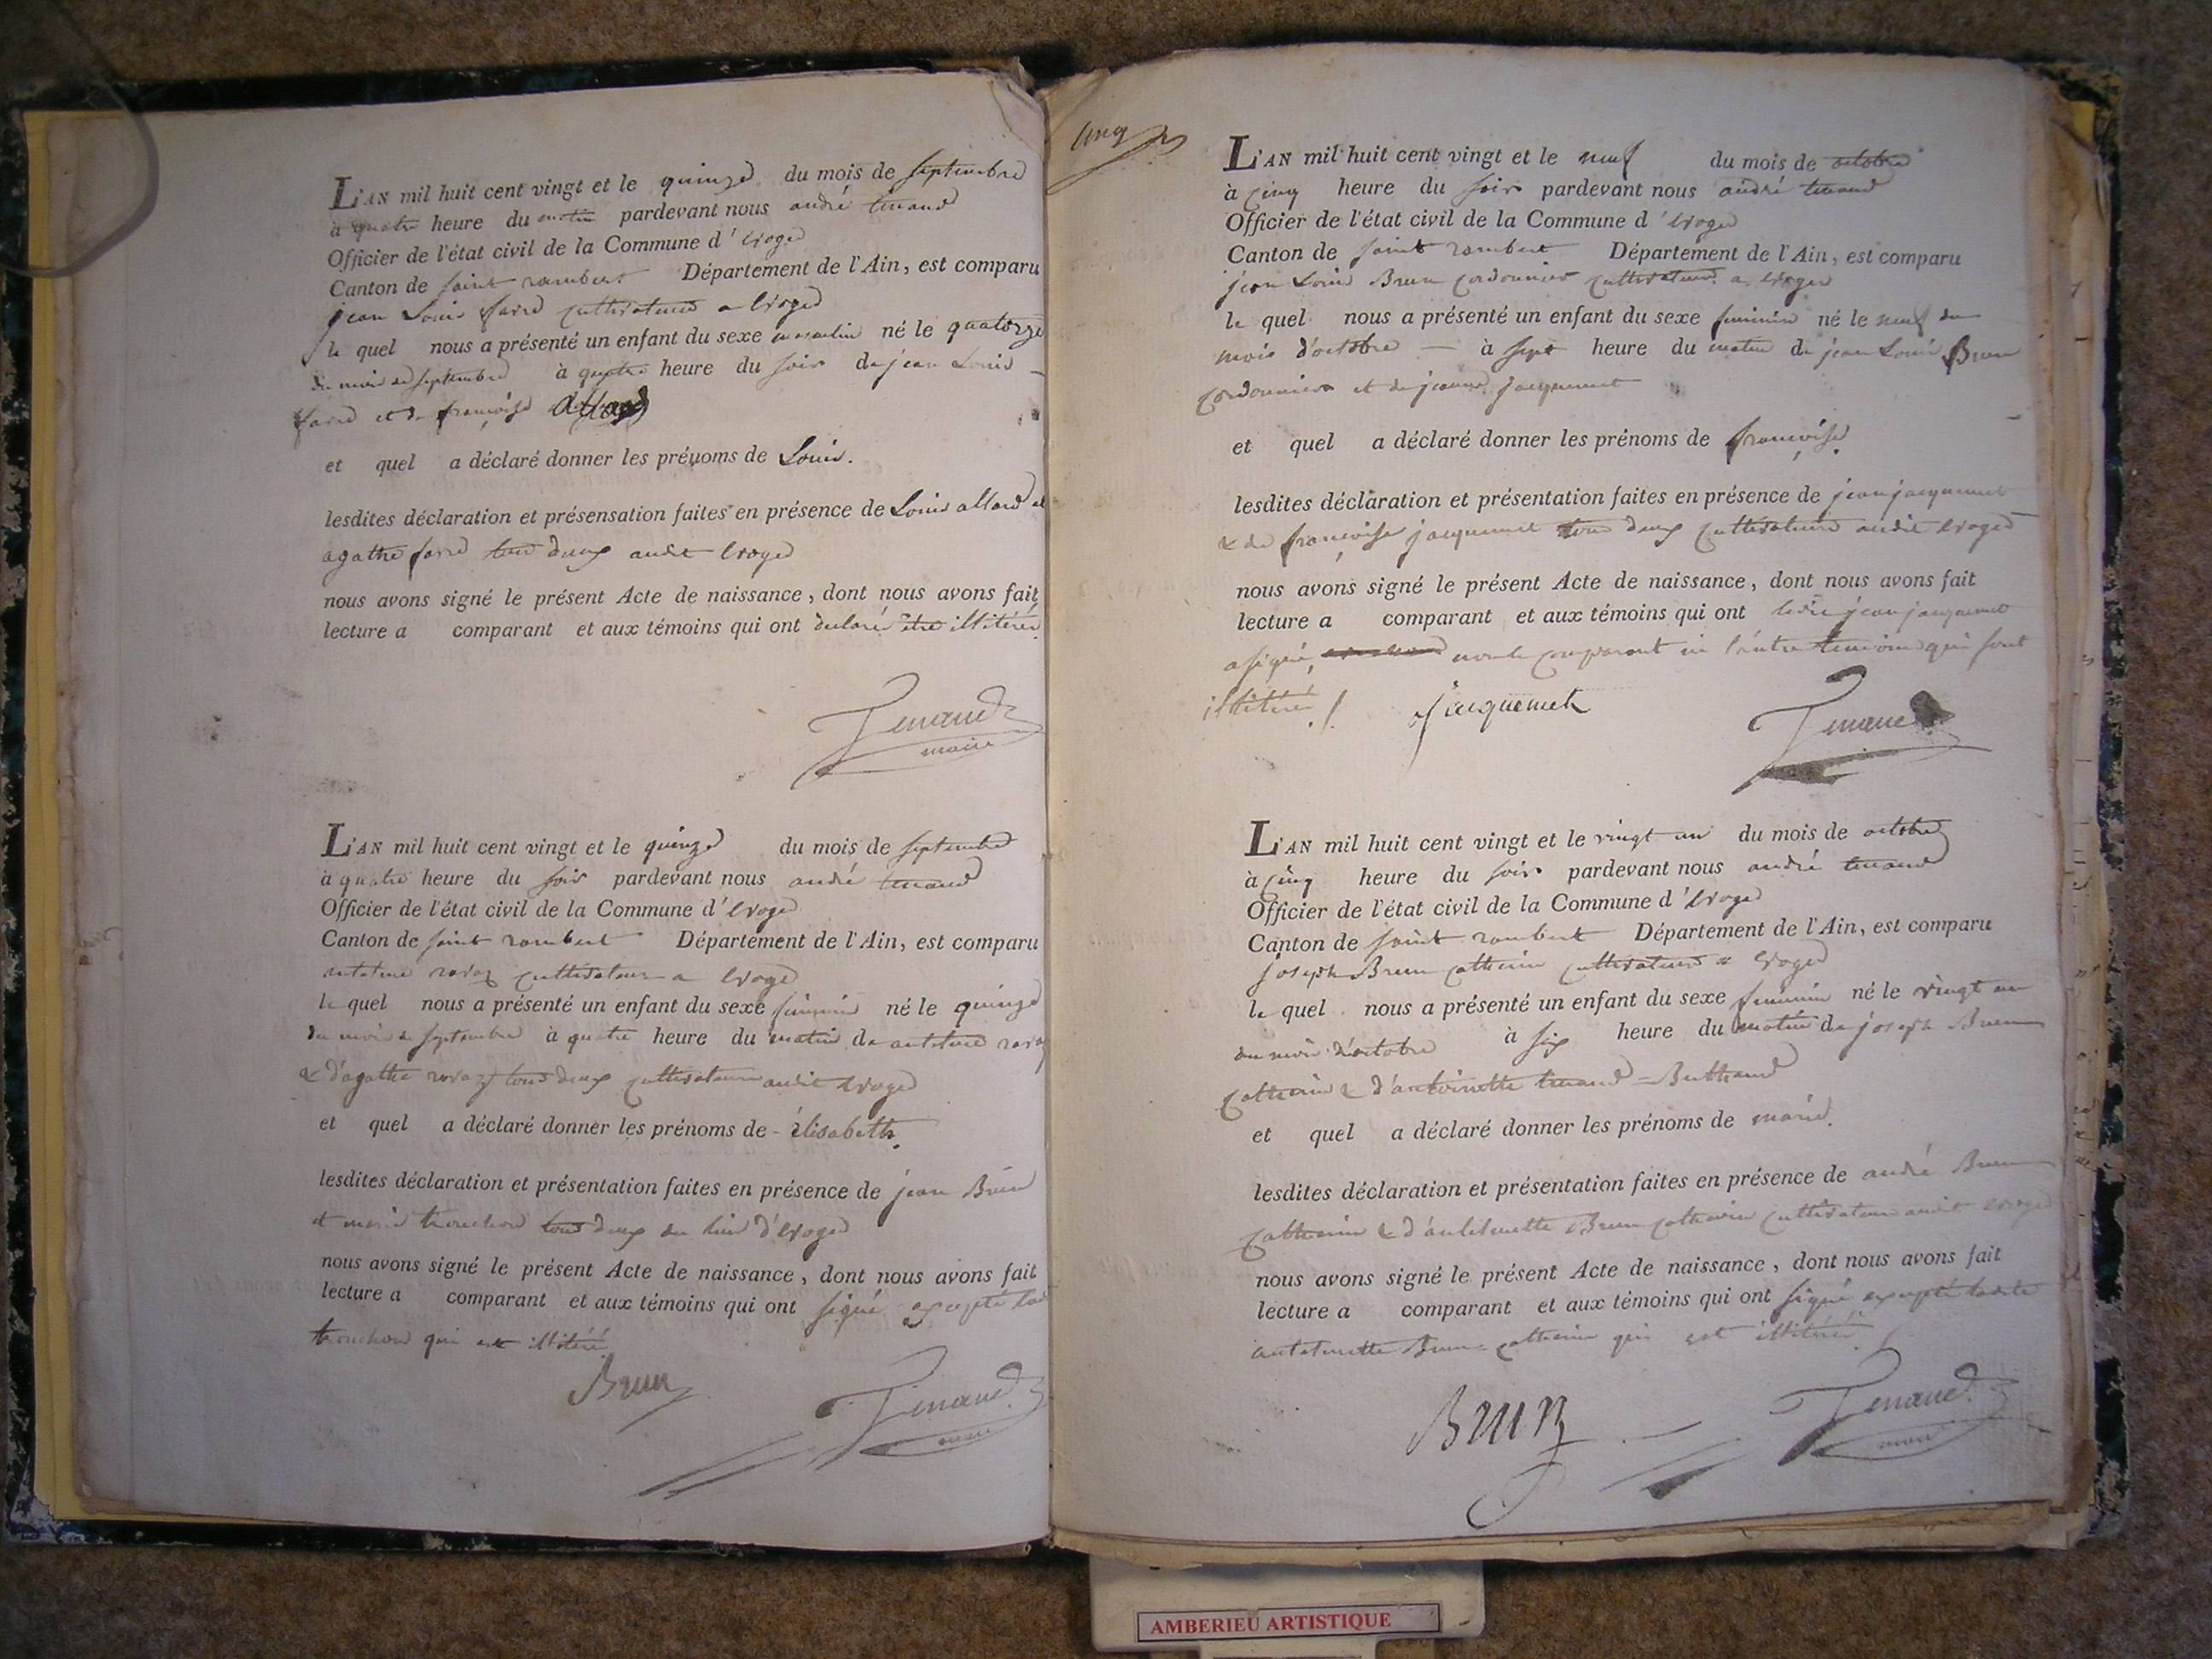 L'AN mil huit cent vingt et le quinze du mois de septembre
à quatre heure du matin pardevant nous andré tenand
Officier de l'état civil de la Commune d'Evoge
Canton de saint rambert Département de l'Ain, est comparu
jean Louis favre cultivateur a Evoge
le quel nous a présenté un enfant du sexe masculin né le quatorze
du mois de septembre à quatre heure du soir de jean Louis
favre et de françoise allard
et quel a déclaré donner les prénoms de Louis.
lesdites déclaration et présensation faites en présence de Louis allard et
agathe favre tous deux audit Evoge
nous avons signé le présent Acte de naissance, dont nous avons fait
lecture a comparant et aux témoins qui ont déclaré être illitérés
Tenand
maire
L'AN mil huit cent vingt et le quinze du mois de septembre
à quatre heure du soir pardevant nous andré tenand
Officier de l'état civil de la Commune d'Evoge
Canton de saint rambert Département de l'Ain, est comparu
antoine ravaz cultivateur a Evoge
le quel nous a présenté un enfant du sexe féminin né le quinze
du mois de septembre à quatre heure du matin de antoine ravaz
& d'agathe ravaz tous deux cultivateurs audit Evoge
et quel a déclaré donner les prénoms de élisabeth.
lesdites déclaration et présentation faites en présence de jean Brun
et marie tronchon tous deux du lieu d'Evoge
nous avons signé le présent Acte de naissance, dont nous avons fait
lecture a comparant et aux témoins qui ont signé excepté
tronchon qui est illitéré
Brun
Tenand
maire
cinq
L'AN mil huit cent vingt et le neuf du mois de octobre
à cinq heure du soir pardevant nous andré tenand
Officier de l'état civil de la Commune d'Evoge
Canton de saint rambert Département de l'Ain, est comparu
jean Louis Brun cordonnier cultivateur a Evoge
le quel nous a présenté un enfant du sexe féminin né le neuf du
mois d'octobre à sept heure du matin de jean Louis Brun
cordonnier et de jeanne jacquemet
et quel a déclaré donner les prénoms de françoise.
lesdites déclaration et présentation faites en présence de jean jacquemet
& de françoise jacquemet tous deux cultivateurs audit Evoge
nous avons signé le présent Acte de naissance, dont nous avons fait
lecture a comparant et aux témoins qui ont ledit jean jacquemet
a signé, non le comparant ni l'autre temoin qui sont
illitérés
jacquemet
Tenand
L'AN mil huit cent vingt et le vingt un du mois de octobre
à cinq heure du soir pardevant nous andré tenand
Officier de l'état civil de la Commune d'Evoge
Canton de saint rambert Département de l'Ain, est comparu
joseph Brun catherin cultivateur a Evoge
le quel nous a présenté un enfant du sexe féminin né le vingt un
du mois d'octobre à six heure du matin de joseph Brun
catherin & d'antoinette tenand = Berthand
et quel a déclaré donner les prénoms de marie.
lesdites déclaration et présentation faites en présence de andré Brun
catherin & d'antoinette Brun catherin cultivateurs audit Evoge
nous avons signé le présent Acte de naissance, dont nous avons fait
lecture a comparant et aux témoins qui ont signé excepté ladite
antoinette Brun = catherin qui est illitérée
Brun
Tenand
maire
AMBERIEU ARTISTIQUE